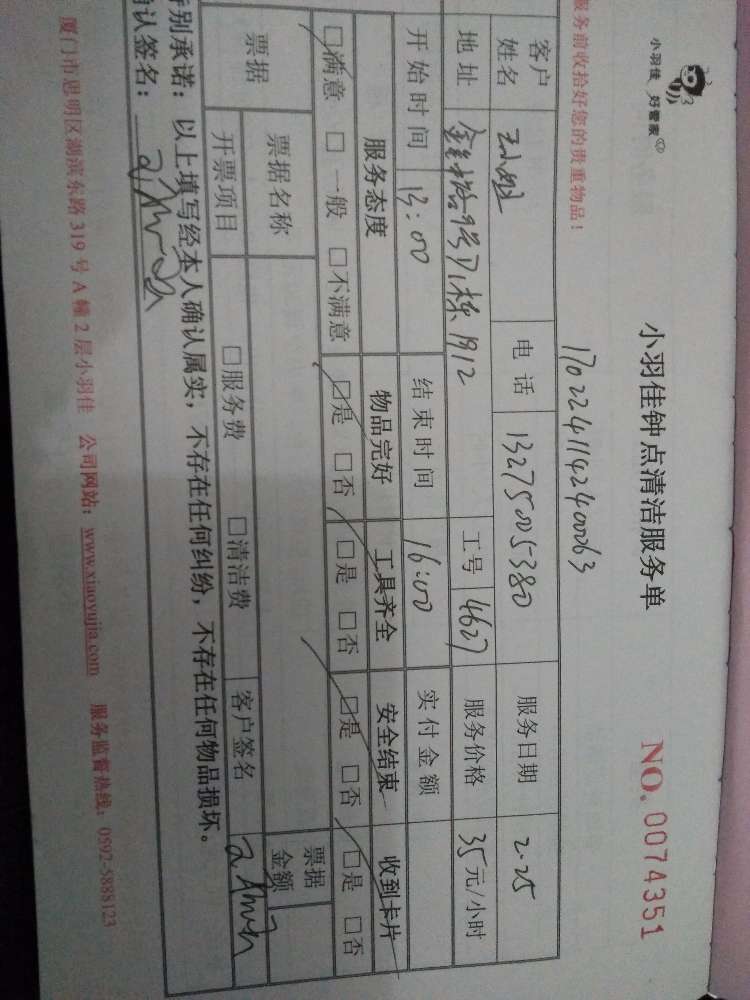 小羽佳 好管家
小羽佳钟点清洁服务单
NO. 0074351
服务前收拾好您的贵重物品!
170224114240063
客户姓名 电话 13275005380 服务日期 2.25
地址 9号 栋 1912 工号 4627 服务价格 35元/小时
开始时间 13:00 结束时间 16:00 实付金额
服务态度 物品完好 工具齐全 安全结束 收到卡片
□满意 □一般 □不满意 □是 □否 □是 □否 □是 □否 □是 □否
票据 票据名称 票据金额
开票项目 □服务费 □清洁费 客户签名
特别承诺:以上填写经本人确认属实,不存在任何纠纷,不存在任何物品损坏。
确认签名:
厦门市思明区湖滨东路319号A幢2层小羽佳 公司网站:www.xiaoyujia.com 服务监督热线:0592-5888123